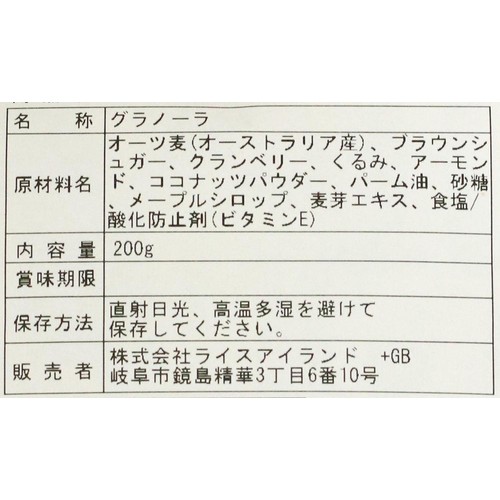 名称 グラノーラ
原材料名 オーツ麦(オーストラリア産)、ブラウンシ
ュガー、クランベリー、くるみ、アーモン
ド、ココナッツパウダー、パーム油、砂糖
、メープルシロップ、麦芽エキス、食塩/
酸化防止剤(ビタミンE)
内容量 200g
賞味期限
保存方法 直射日光、高温多湿を避けて
保存してください。
販売者 株式会社ライスアイランド +GB
岐阜市鏡島精華3丁目6番10号